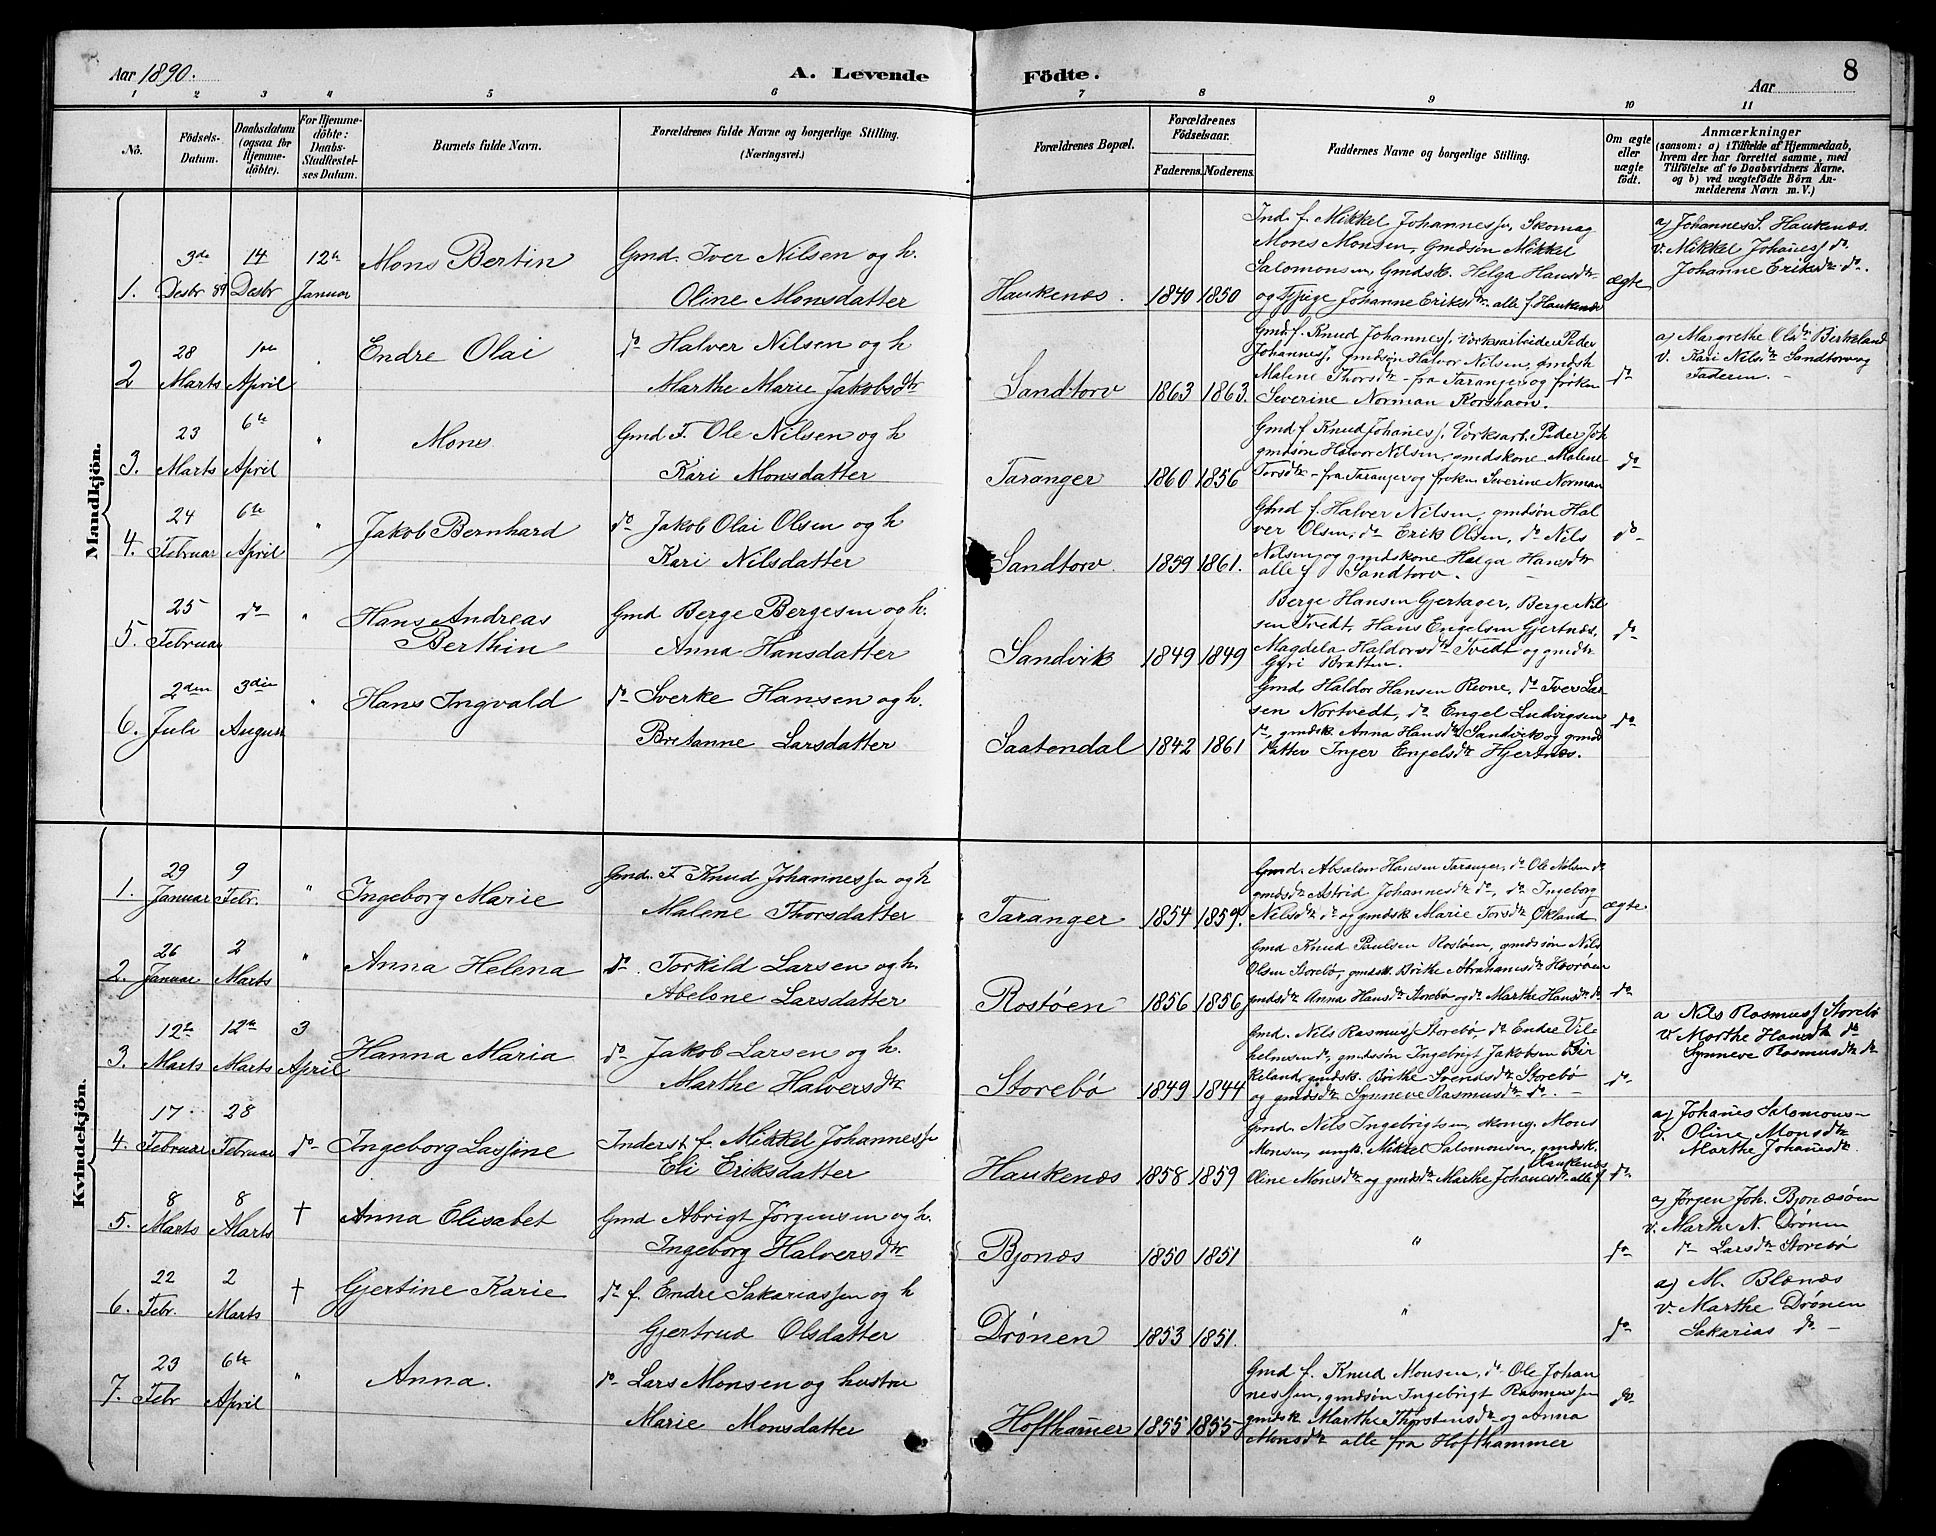 Aar 1890. A. Levende Födte. Aar 8
1 2 3 4 5 6 7 8 9 10 11
No. Födsels-Datum. Daabsdatum (ogsaa for Hjemmedöbte). For Hjemmedöbte: Daabs-Stadfæstelses Datum. Barnets fulde Navn. Forældrenes fulde Navne og borgerlige Stilling. (Næringsvei.) Forældrenes Bopæl. Forældrenes Födselsaar. Faderens. Moderens. Faddernes Navne og borgerlige Stilling. Om ægte eller uægte födt. Anmærkninger (saasom: a) i Tilfælde af Hjemmedaab, hvem der har forrettet samme, med Tilföielse af to Daabsvidners Navne. og b) ved uægtefödte Börn Anmelderens Navn m. V.)
Mandkjön.
1. 3de Desbr 89 14 Desbr 12te Januar Mons Bertin
Gmd. Iver Nilsen og h.
Oline Monsdatter
Haukenæs. 1840 1850
Ind f. Mikkel Johannessen, Skomag
Mons Monsen, Gmdsøn Mikkel
Salomonsen, Gmdsk. Helga Hansdtr
og Pige Johanne Eriksdtr alle f. Haukenæs
ægte
a) Johannes S. Haukenæs.
v. Mikkel Johaness do
Johanne Eriksdtr do.
2 28 Marts 1ste April " Endre Olai
do Halver Nilsen og h
Marthe Marie Jakobsdtr
Sandtorv 1863 1863.
Gmd f. Knud Johanness, Værksarbeider Peder
Johannes, gmdsøn Halvor Nilsen, gmdsk
Malene Thorsdtr fra Taranger og frøken
Severine Norman Korshavn.
do
a) Margrethe Olsdtr Birkeland
v. Kari Nilsdtr Sandtorv og
Faderen. -
3. 23 Marts 6te April " Mons
Gmd F. Ole Nilsen og h
Kari Monsdatter
Taranger 1860 1856
Gmd f. Knud Johaness, Værksarb. Peder Joh
gmdsøn Halvor Nilsen, gmdskone Malene
Torsdtr - fra Taranger og frøken Severine Norman
do
4. 24 Februar 6te April " Jakob Bernhard
do Jakob Olai Olsen og h
Kari Nilsdatter
Sandtorv. 1859 1861.
Gmd f. Halver Nilsen, gmdsøn Hal
ver Olsen, do Erik Olsen, do Nils
Nilsen og gmdskone Helga Hansdtr
alle f Sandtorv. -
do
5. 25 Februar do " Hans Andreas
Berthin
Gmd Berge Bergesen og h.
Anna Hansdatter
Sandvik 1849 1849
Berge Hansen Gjertager, Berge Nil
sen Tvedt, Hans Engelsen Gjertnæs,
Magdela Haldorsdtr Tvedt og gmdtr
Gjøri Bratten.
do
6. 2den Juli 3die August " Hans Ingvald
do Sverke Hansen og h.
Britanne Larsdatter
Saatendal 1842 1861
Gmd. Haldor Hansen Revne, do Iver Lar
sen Nortvedt, do Engel Ludvigsen
do, gmdsk. Anna Hansdtr Sandvik og gmds
datter Inger Engelsdtr Hjertnæs.
do
Kvindekjön.
1. 29 Januar 9 Febr. " Ingeborg Marie
Gmd. F. Knud Johannessen og h
Malene Thorsdatter
Taranger 1854 1859.
Gmd. Absalon Hansen Taranger, do Ole Nilsen do
gmdsdtr Astrid Johannesdtr do, do Ingeborg
Nilsdtr do og gmdsk Marie Torsdtr Økland
ægte
2. 26 Januar 2 Marts " Anna Helena
do. Torkild Larsen og h.
Abelone Larsdatter
Rostøen 1856 1856
Gmd Knud Paulsen Rostøen, gmdsøn Nils
Olsen Storebø, gmdsk. Brithe Abrahamsdtr Hevrøen
gmdsdtr Anna Hansdtr Storebø og do Marthe Hansdtr do
do
3. 12te Marts 12te Marts 3 April Hanna Maria
do Jakob Larsen og h.
Marthe Halversdtr
Storebø 1849 1844
Gmd. Nils Rasmuss Storebø, do Endre Vil
helmsen do, gmdssøn Ingebrigt Jakobsen Bir
keland, gmdsk. Brithe Svendsdtr Storebø
og gmdsdtr Synneve Rasmusdtr do. -
do
a Nils Rasmuss Storebø
v Marthe Hansdtr do
Synneve Rasmusdtr do
4. 17 Februar 28 Februar do Ingeborg Lassine
Inderst f. Mikkel Johannessen
Eli Eriksdatter
Haukenæs 1858 1859
Gmd. Nils Ingebrigtsen, skomg. Mons
Monsen, ungk. Mikkel Salomonsen, gmdsk.
Oline Monsdtr og gmdsdtr Marthe Johanesdtr alle f. Haukenæs
do
a) Johanes Salomons-
v. Oline Monsdtr
Marthe Johanesdtr
5. 8 Marts 8 Marts † Anna Elisabet
Gmd Abrigt Jørgensen og h.
Ingeborg Halversdtr
Bjonæs 1850 1851 " do
a) Jørgen Joh. Bjonæsøen
v. Marthe N. Drönen
do Larsdtr Storebø
6. 22 Febr. 2 Marts † Gjertine Karie
do f. Endre Sakariassen og h
Gjertrud Olsdatter
Drönen 1853 1851. " do
a) M. Blænæs
v. Marthe Drönen
Sakarias do -
7. 23 Febr 6te April " Anna.
do Lars Monsen og hustru
Marie Monsdatter
Hofthamer 1855 1855
Gmd f. Knud Monsen, do Ole Johan
nessen, gmdsøn Ingebrigt Rasmussen
gmdsk. Marthe Thorstensdtr og Anna
Monsdtr alle fra Hofthammer
do